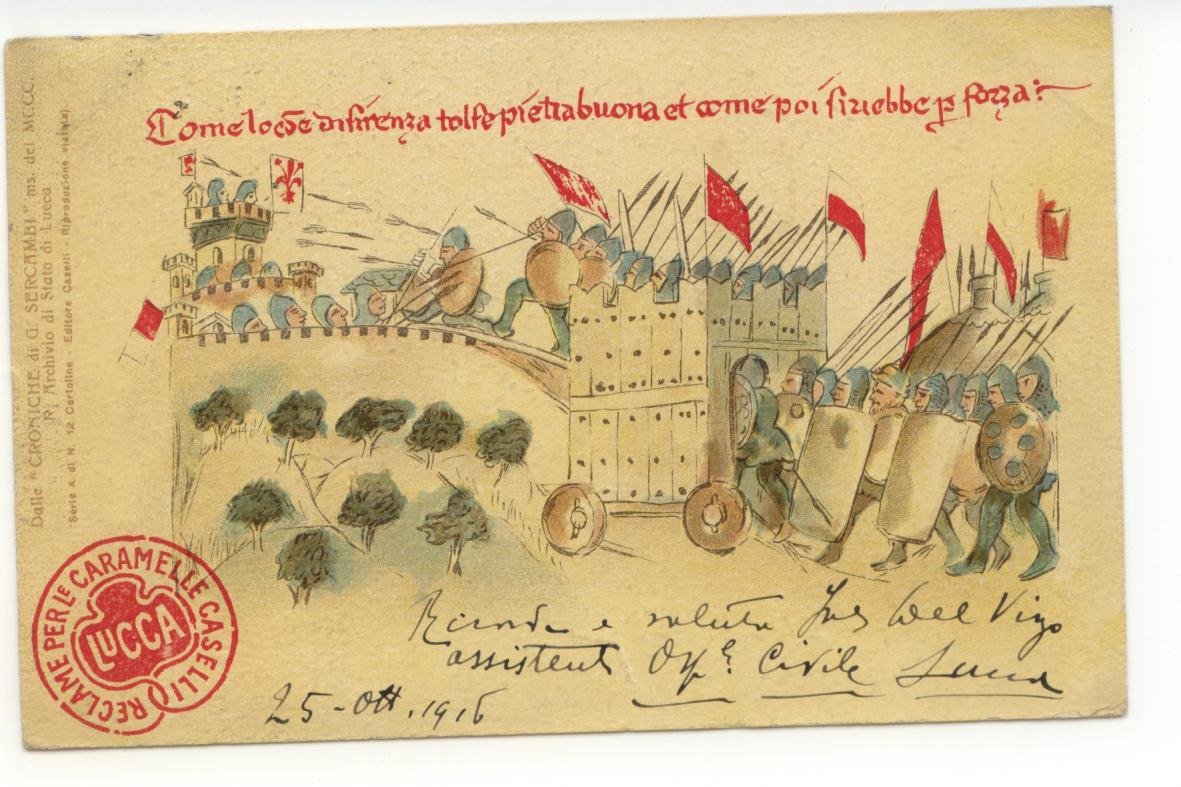 Come lo cōe di firenza tolse pietrabuona et come poi si riebbe p forza:
Dalle "CRONICHE di G. SERCAMBI" ms. del MCCC.
R. Archivio di Stato di Lucca
(Serie A di N. 12 Cartoline - Editore Caselli - Riproduzione vietata)
RECLAME PER LE CARAMELLE CASELLI
LUCCA
Ricorda e saluta Del Vigo
assistente Osp.e Civile Lucca
25-Ott. 1916